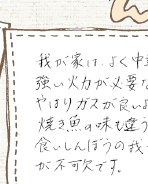 我が家は、よく中
強い火力が必要な
やはりガスが良い
焼き魚の味も違う
食いしんぼうの我
が不可欠です。